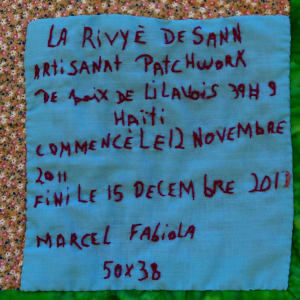 LA RiVYÈ DESANN
ARTiSANAT PATCHWORK
DE bOiX DE LiLAVOiS 39H 9
HAiTi
COMMENCÈ LE 12 NOVEMBRE
2011
FiNi LE 15 DECEMbRE 2011
MARCEL FAbiOLA
50X38